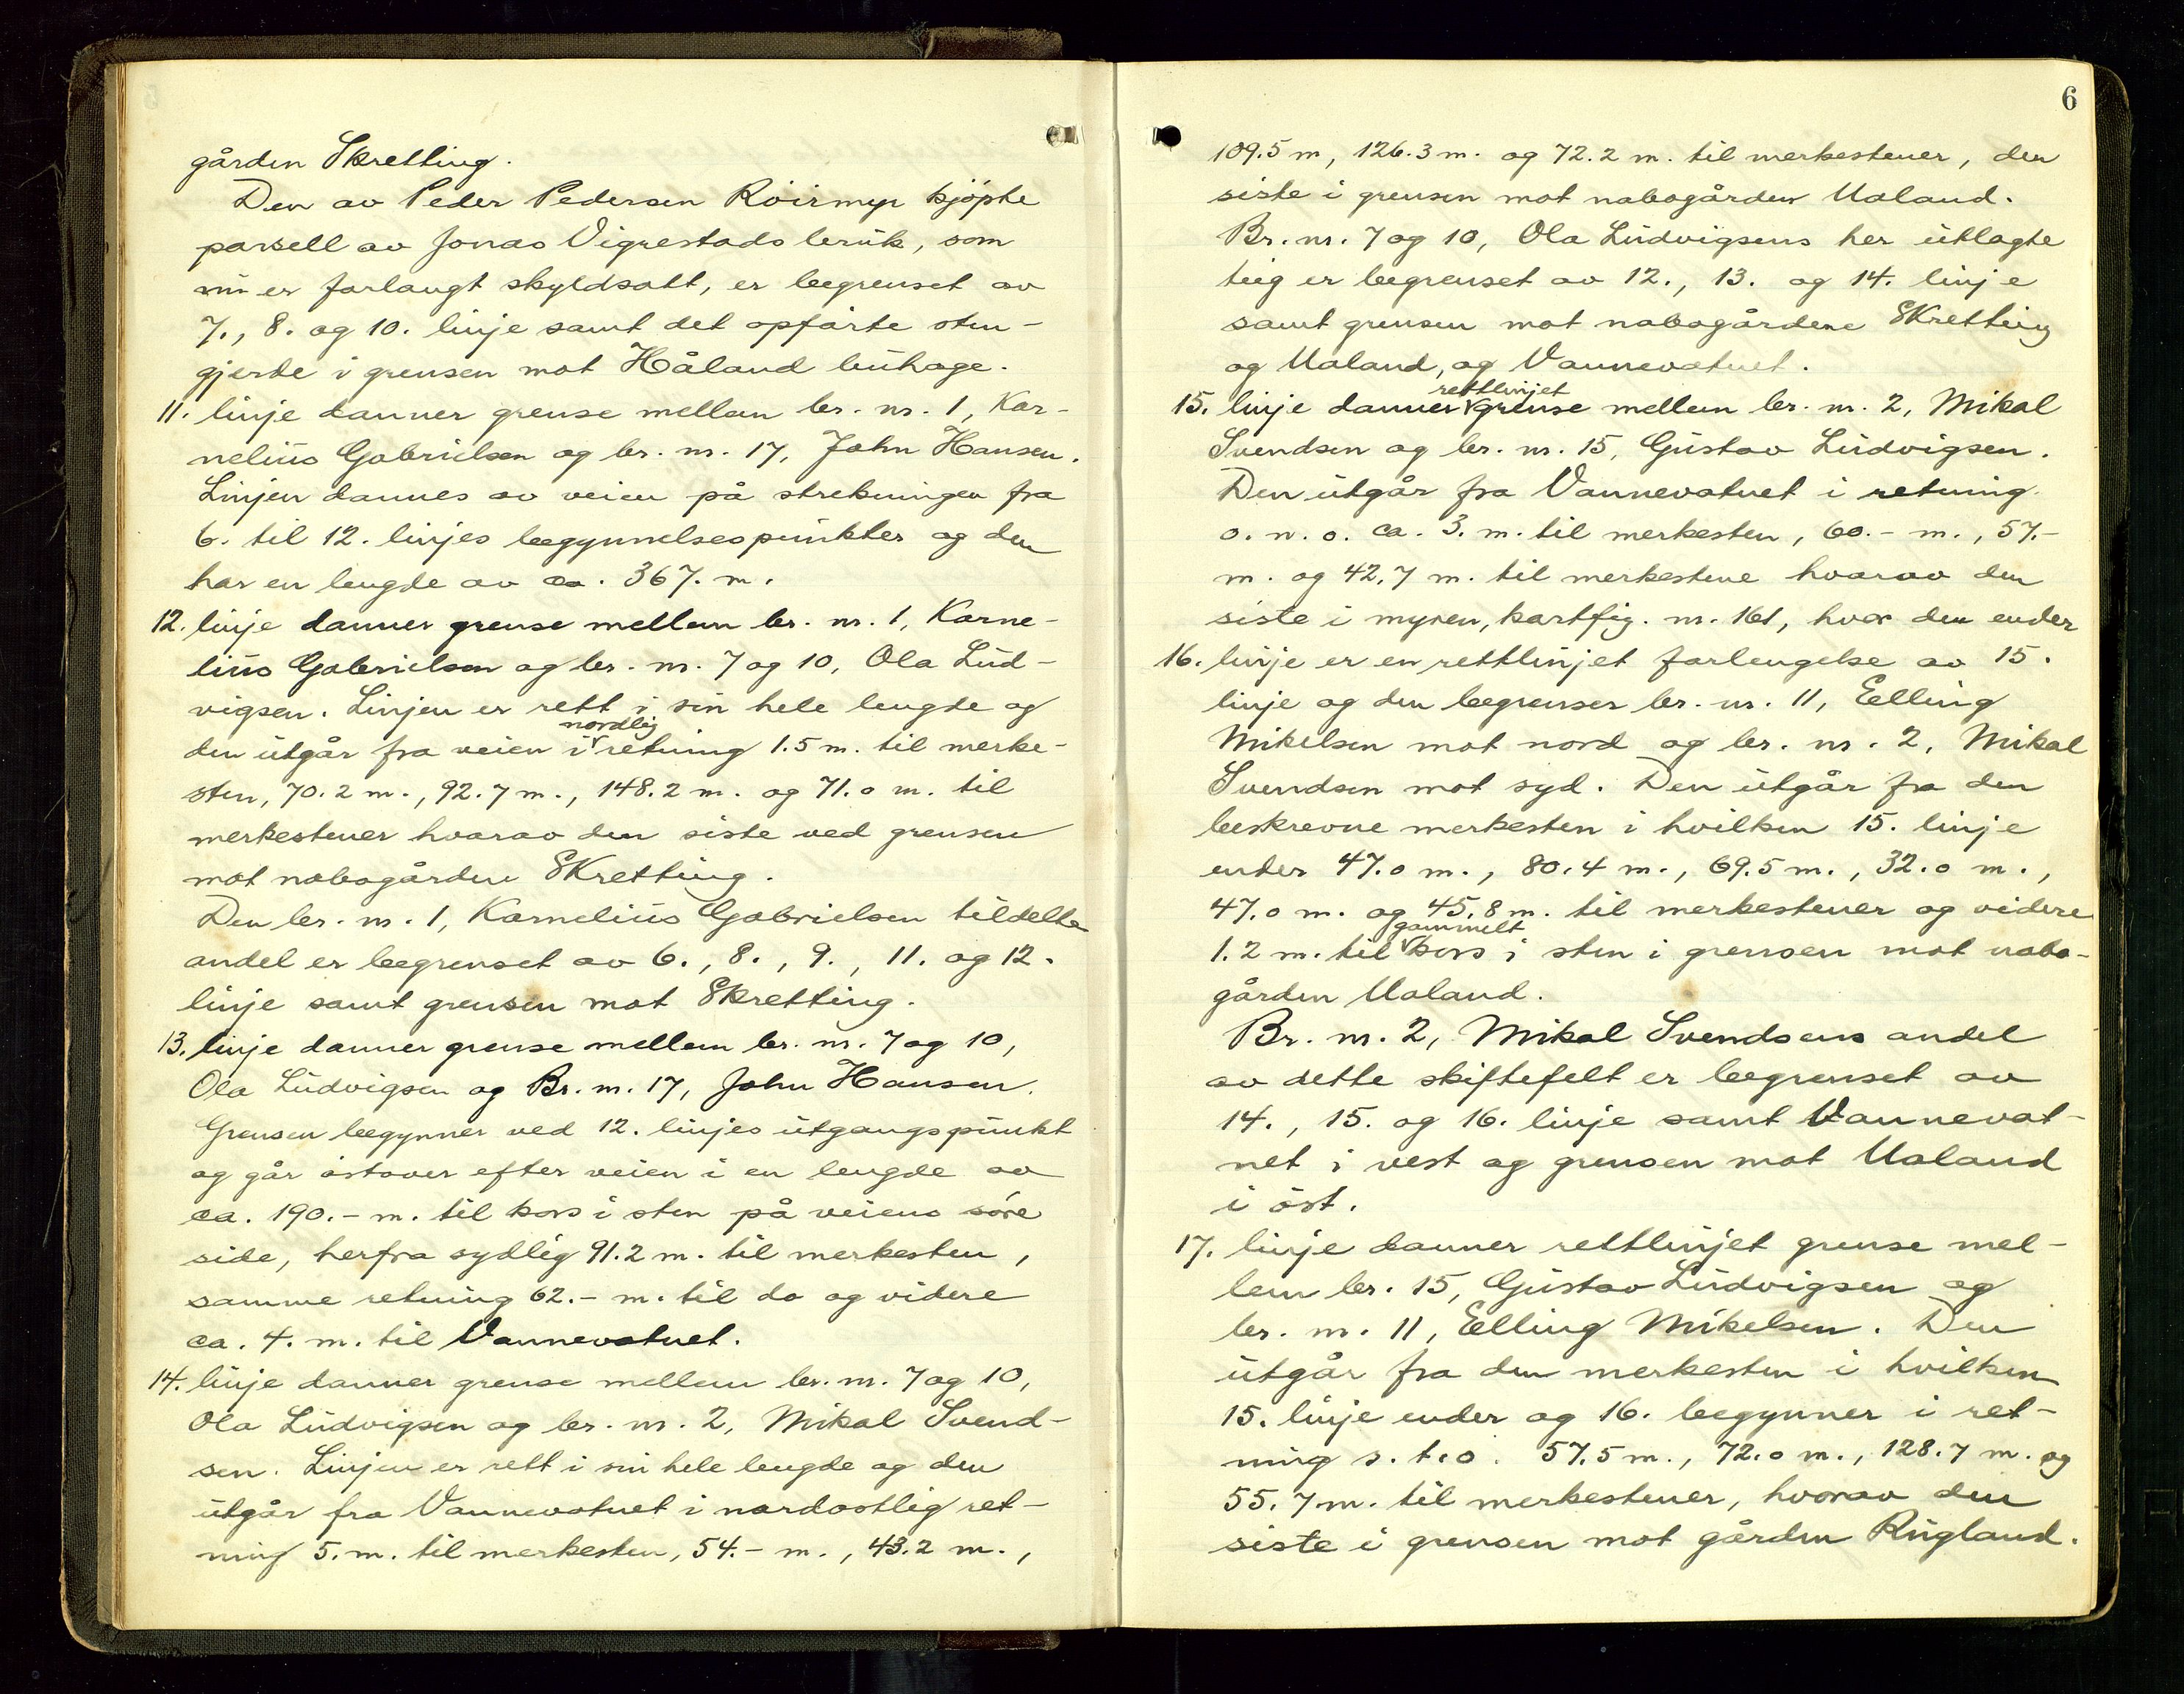 gården Skretting.
Den av Peder Pedersen Röirmyr kjöpte
parsell av Jonas Vigrestads bruk, som
nu er forlangt skyldsatt, er begrenset av
7., 8. og 10. linje samt det opförte sten-
gjerde i grensen mot Håland buhage.
11. linje danner grense mellem br. nr. 1, Kor-
nelius Gabrielsen og br. nr. 17, John Hansen.
Linjen dannes av veien på strekningen fra
6. til 12. linjes begynnelsespunkter og den
har en lengde av ca. 367. m.
12. linje danner grense mellem br. nr. 1, Korne-
lius Gabrielsen og br. nr. 7 og 10, Ola Lud-
vigsen. Linjen er rett i sin hele lengde og
den utgår fra veien i nordlig retning 1.5 m. til merke-
sten, 70.2 m., 92.7 m., 148.2 m. og 71.0 m. til
merkestener hvorav den siste ved grensen
mot nabogården Skretting.
Den br. nr. 1, Kornelius Gabrielsen tildelte
andel er begrenset av 6., 8., 9., 11. og 12.
linje samt grensen mot Skretting.
13. linje danner grense mellem br. nr. 7 og 10,
Ola Ludvigsen og Br. nr. 17, John Hansen.
Grensen begynner ved 12. linjes utgangspunkt
og går östover efter veien i en lengde av
ca. 190.- m. til kors i sten på veiens söre
side, herfra sydlig 91.2 m. til merkesten,
samme retning 62.- m. til do og videre
ca. 4. m. til Vannevatnet.
14. linje danner grense mellem br. nr. 7 og 10,
Ola Ludvigsen og br. nr. 2, Mikal Svend-
sen. Linjen er rett i sin hele lengde og den
utgår fra Vannevatnet i nordostlig ret-
ning 5. m. til merkesten, 54.- m., 43.2 m.,
6
109.5 m, 126.3 m. og 72.2 m. til merkestener, den
siste i grensen mot nabogården Ualand.
Br. nr. 7 og 10, Ola Ludvigsens her utlagte
teig er begrenset av 12., 13. og 14. linje
samt grensen mot nabogårdene Skretting
og Ualand, og Vannevatnet.
15. linje danner rettlinjet grense mellem br. nr. 2, Mikal
Svendsen og br. nr. 15, Gustav Ludvigsen.
Den utgår fra Vannevatnet i retning
o. n. o. ca. 3. m. til merkesten, 60.- m., 57.-
m. og 42.7 m. til merkestene hvorav den
siste i myren, kartfig. nr. 161, hvor den ender
16. linje er en rettlinjet forlengelse av 15.
linje og den begrenser br. nr. 11, Elling
Mikelsen mot nord og br. nr. 2, Mikal
Svendsen mot syd. Den utgår fra den
beskrevne merkesten i hvilken 15. linje
ender 47.0 m., 80.4 m., 69.5 m., 32.0 m.,
47.0 m. og 45.8 m. til merkestener og videre
1.2 m. til gammelt kors i sten i grensen mot nabo-
gården Ualand.
Br. nr. 2, Mikal Svendsens andel
av dette skiftefelt er begrenset av
14., 15. og 16. linje samt Vannevat-
net i vest og grensen mot Ualand
i öst.
17. linje danner rettlinjet grense mel-
lem br. 15, Gustav Ludvigsen og
br. nr. 11, Elling Mikelsen. Den
utgår fra den merkesten i hvilken
15. linje ender og 16. begynner i ret-
ning s. t. o. 57.5 m., 72.0 m., 128.7 m. og
55.7 m. til merkestener, hvorav den
siste i grensen mot gården Rugland.